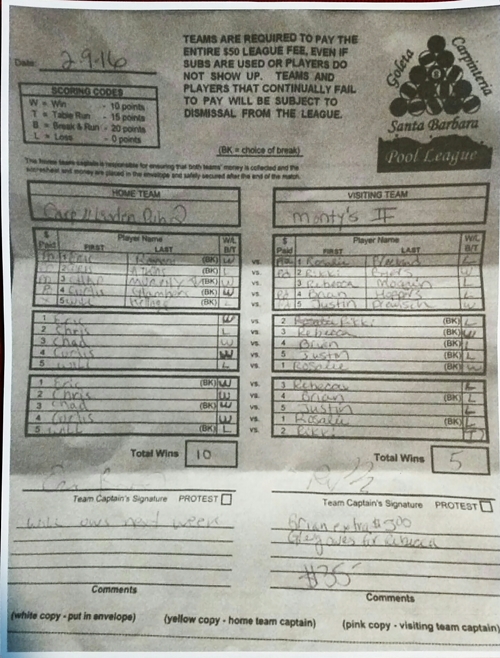 TEAMS ARE REQUIRED TO PAY THE
ENTIRE $50 LEAGUE FEE, EVEN IF
SUBS ARE USED OR PLAYERS DO
NOT SHOW UP. TEAMS AND
PLAYERS THAT CONTINUALLY FAIL
TO PAY WILL BE SUBJECT TO
DISMISSAL FROM THE LEAGUE.
Date: 2-9-16
Goleta Carpinteria
Santa Barbara
Pool League
SCORING CODES
W = Win - 10 points
T = Table Run - 15 points
B = Break & Run - 20 points
L = Loss - 0 points
(BK = choice of break)
The home team captain is responsible for ensuring that both teams' money is collected and the
scoresheet and money are placed in the envelope and safely secured after the end of the match.
HOME TEAM
VISITING TEAM
Monty's II
$ Paid Player Name FIRST LAST W/L B/T
$ Paid Player Name FIRST LAST W/L B/T
1 Eric (BK) vs. 1 Rosalie
2 Chris L vs. 2 Rikki W
3 (BK) W vs. 3 Rebecca L
4 Curtis (BK) W vs. 4 Brian L
5 Will L vs. 5 Justin W
1 Eric W vs. 2 Rikki (BK) L
2 Chris L vs. 3 Rebecca (BK) W
3 Chad W vs. 4 Brian (BK) L
4 Curtis W vs. 5 Justin (BK) L
5 Will L vs. 1 Rosalie (BK) W
1 Eric (BK) W vs. 3 Rebecca L
2 Chris W vs. 4 Brian (BK) L
3 Chad (BK) W vs. 5 Justin L
4 Curtis W vs. 1 Rosalie (BK) L
5 Will (BK) L vs. 2 Rikki T
Total Wins 10
Total Wins 5
Team Captain's Signature PROTEST
Team Captain's Signature PROTEST
Will owes next week
Brian extra $
Greg owes for Rebecca
$35-
Comments
Comments
(white copy - put in envelope) (yellow copy - home team captain) (pink copy - visiting team captain)